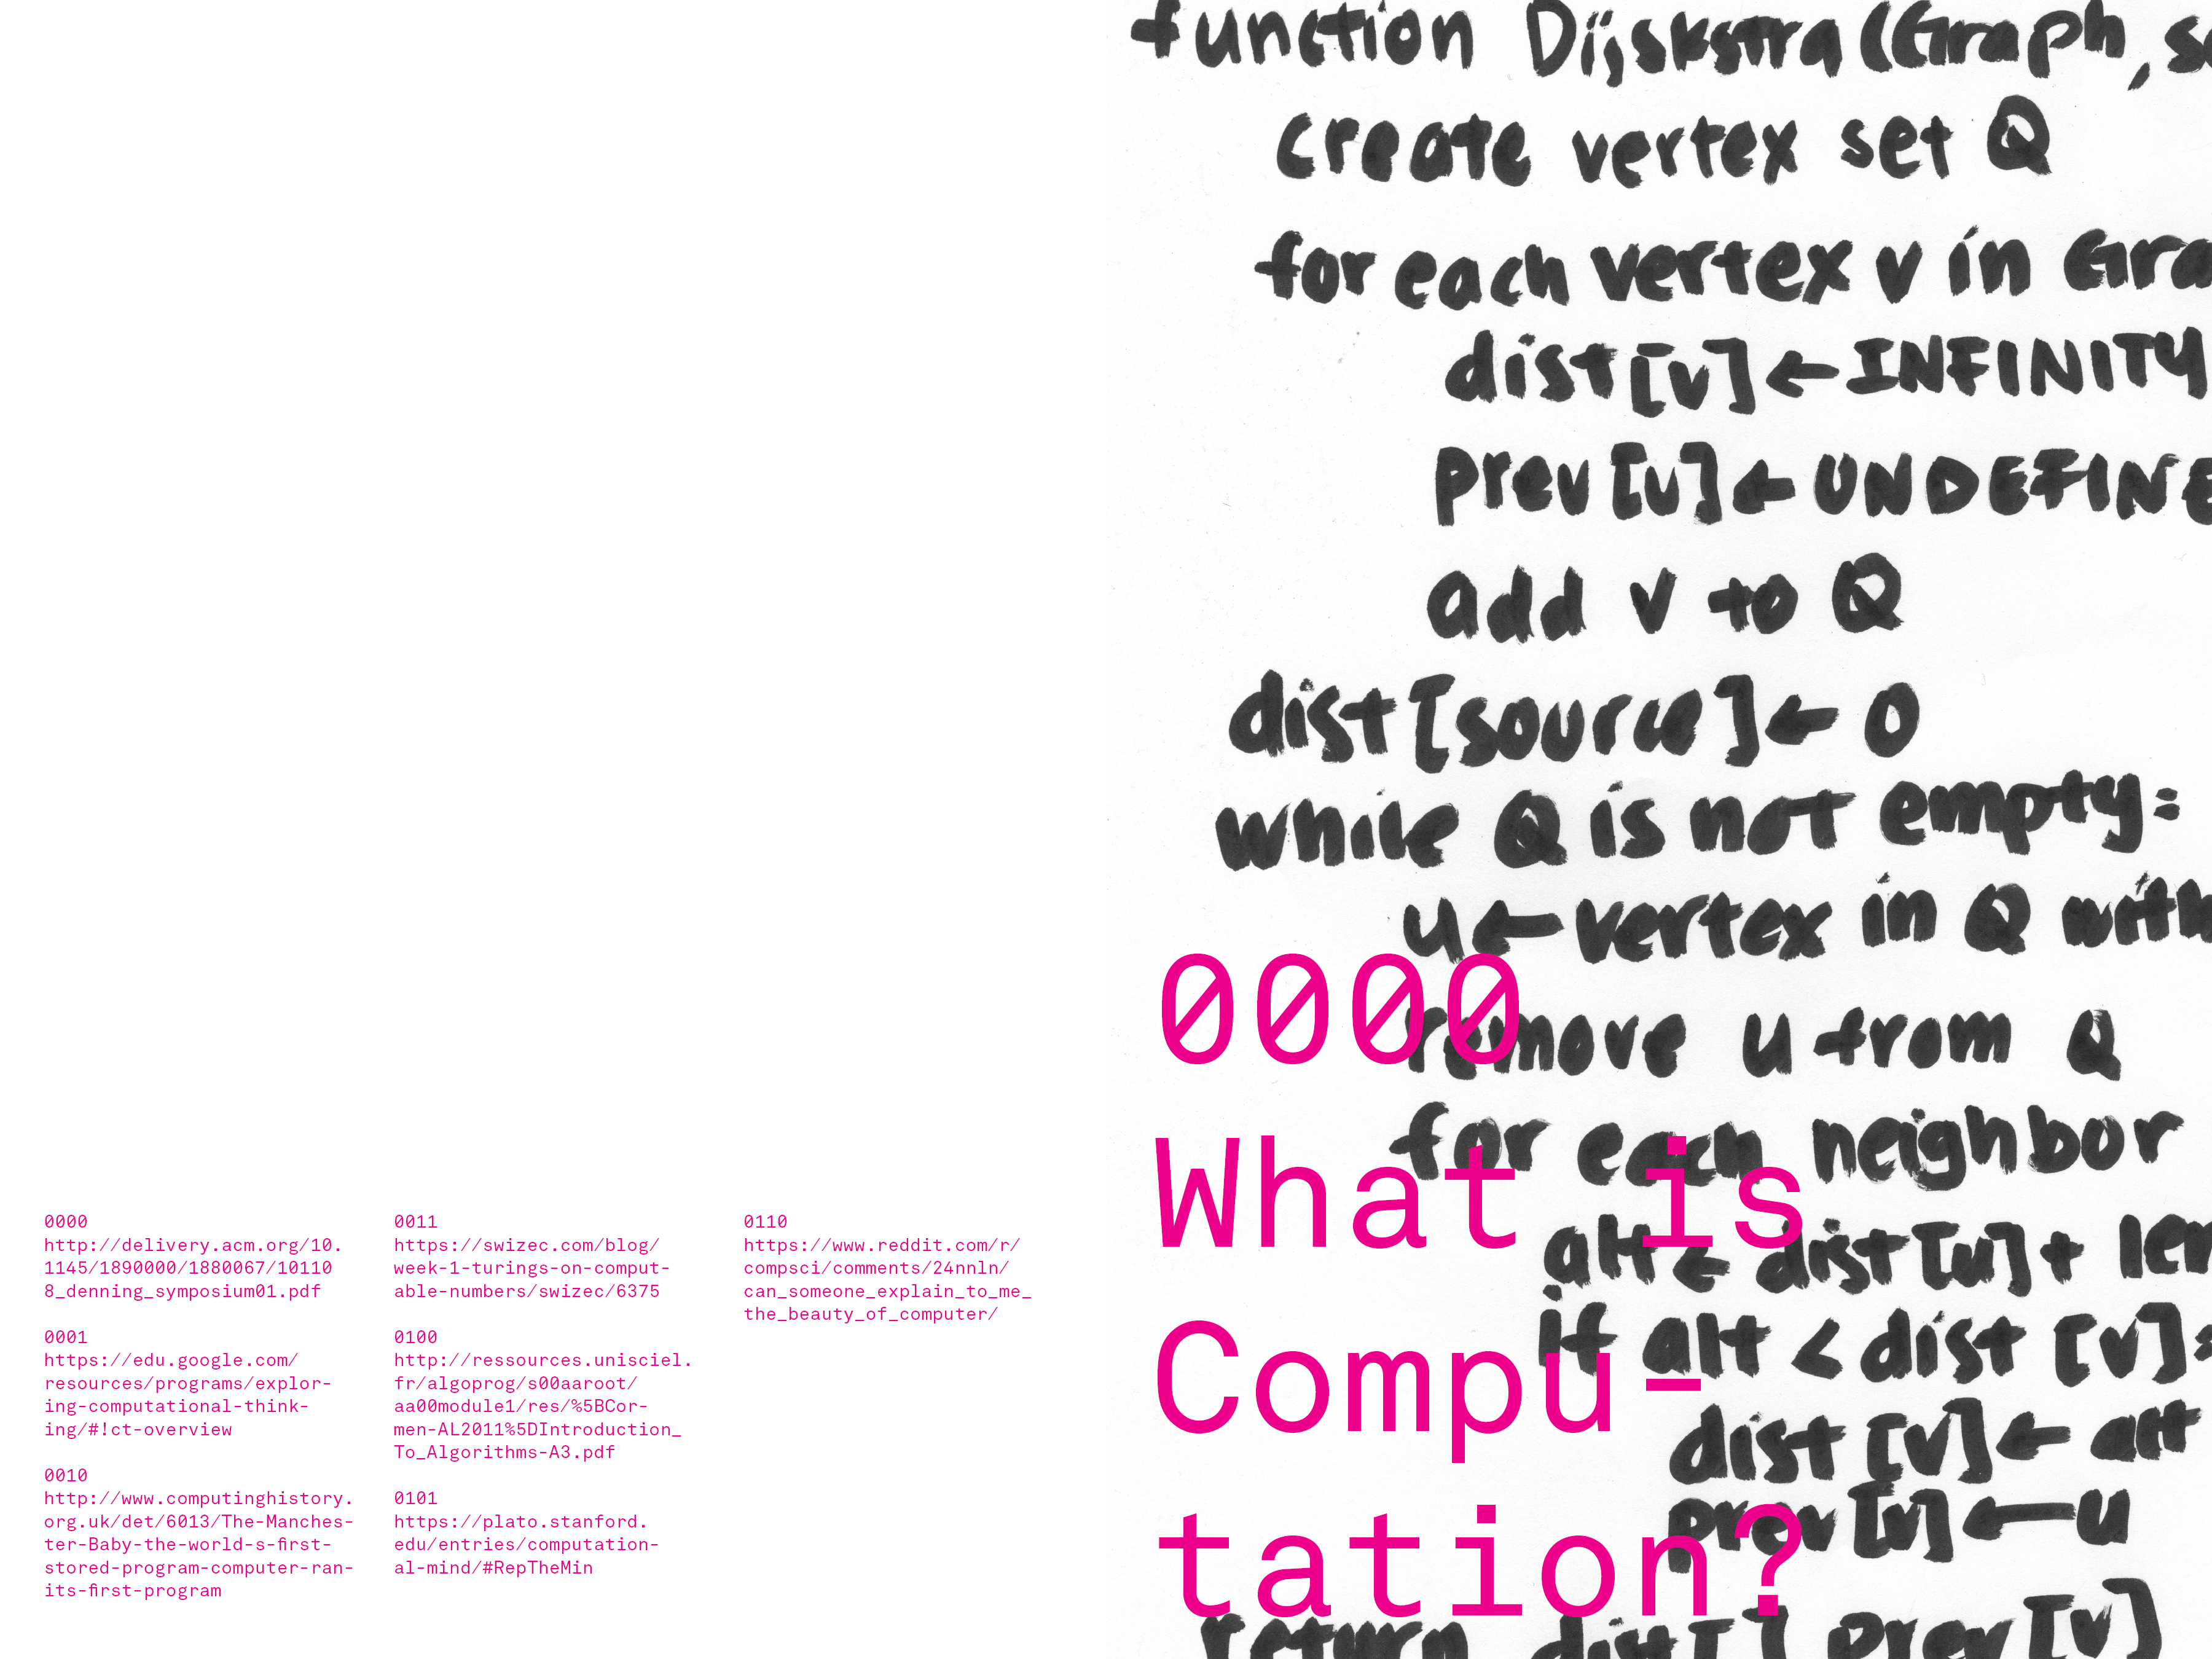 0000
http://delivery.acm.org/10.
1145/1890000/1880067/10110
8_denning_symposium01.pdf
0001
https://edu.google.com/
resources/programs/explor-
ing-computational-think-
ing/#!ct-overview
0010
http://www.computinghistory.
org.uk/det/6013/The-Manches-
ter-Baby-the-world-s-first-
stored-program-computer-ran-
its-first-program
0011
https://swizec.com/blog/
week-1-turings-on-comput-
able-numbers/swizec/6375
0100
http://ressources.unisciel.
fr/algoprog/s00aaroot/
aa00module1/res/%5BCor-
men-AL2011%5DIntroduction_
To_Algorithms-A3.pdf
0101
https://plato.stanford.
edu/entries/computation-
al-mind/#RepTheMin
0110
https://www.reddit.com/r/
compsci/comments/24nnln/
can_someone_explain_to_me_
the_beauty_of_computer/
function Dijskstra (Graph, so
create vertex set Q
for each vertex v in Gra
dist[v] ← INFINITY
prev[v] ← UNDEFINE
add v to Q
dist[source] ← 0
while Q is not empty:
u ← vertex in Q with
remove u from Q
for each neighbor
alt ← dist[u] + len
if alt < dist [v]:
dist [v] ← alt
prev [v] ← u
return dist[] prev[v]
0000
What is
Compu-
tation?